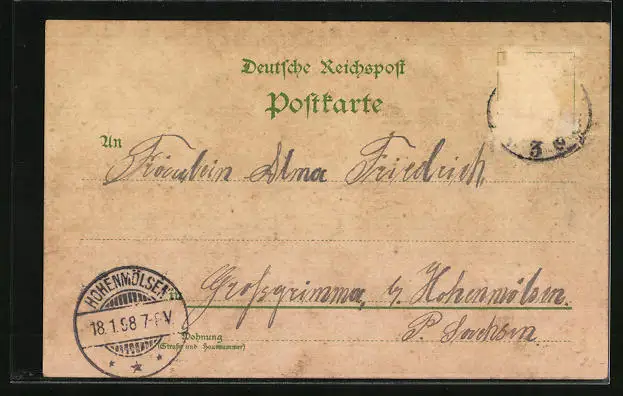 Deutsche Reichspost
Postkarte
An
Fräulein Alma Friedrich,
Grossgrimma, b/ Hohenmölsen.
P. Sachsen.
Wohnung
(Straße und Hausnummer)
HOHENMÖLSEN
18.1.98 7-8V
3